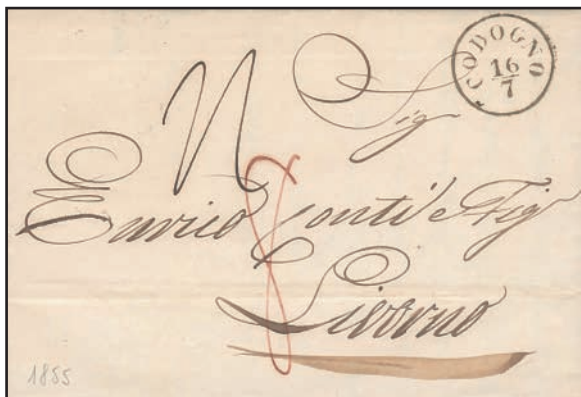 CODOGNO
16
7
Sig
Enrico Conti e Fig
Livorno
8
1855